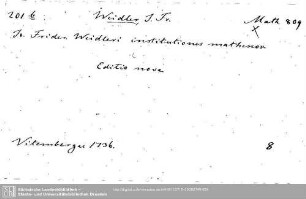 201 b Weidler, J. Fr. Math 809
X
Jo. Frider. Weidleri institutiones mathem
Editio nova
Vitembergae 1736. 8
Sächsische Landesbibliothek -
Staats- und Universitätsbibliothek Dresden